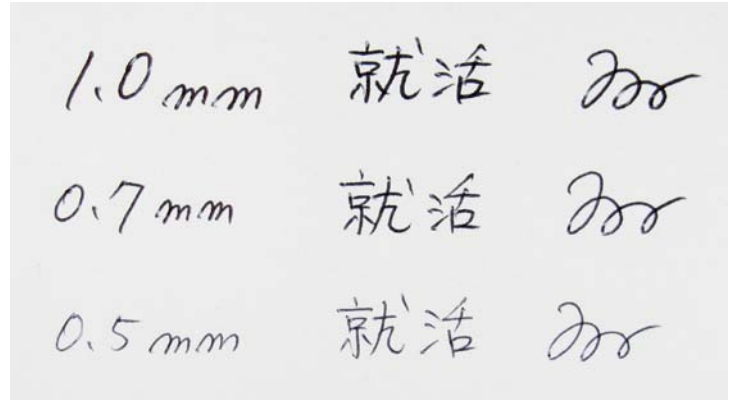 1.0mm 就活
0.7mm 就活
0.5mm 就活